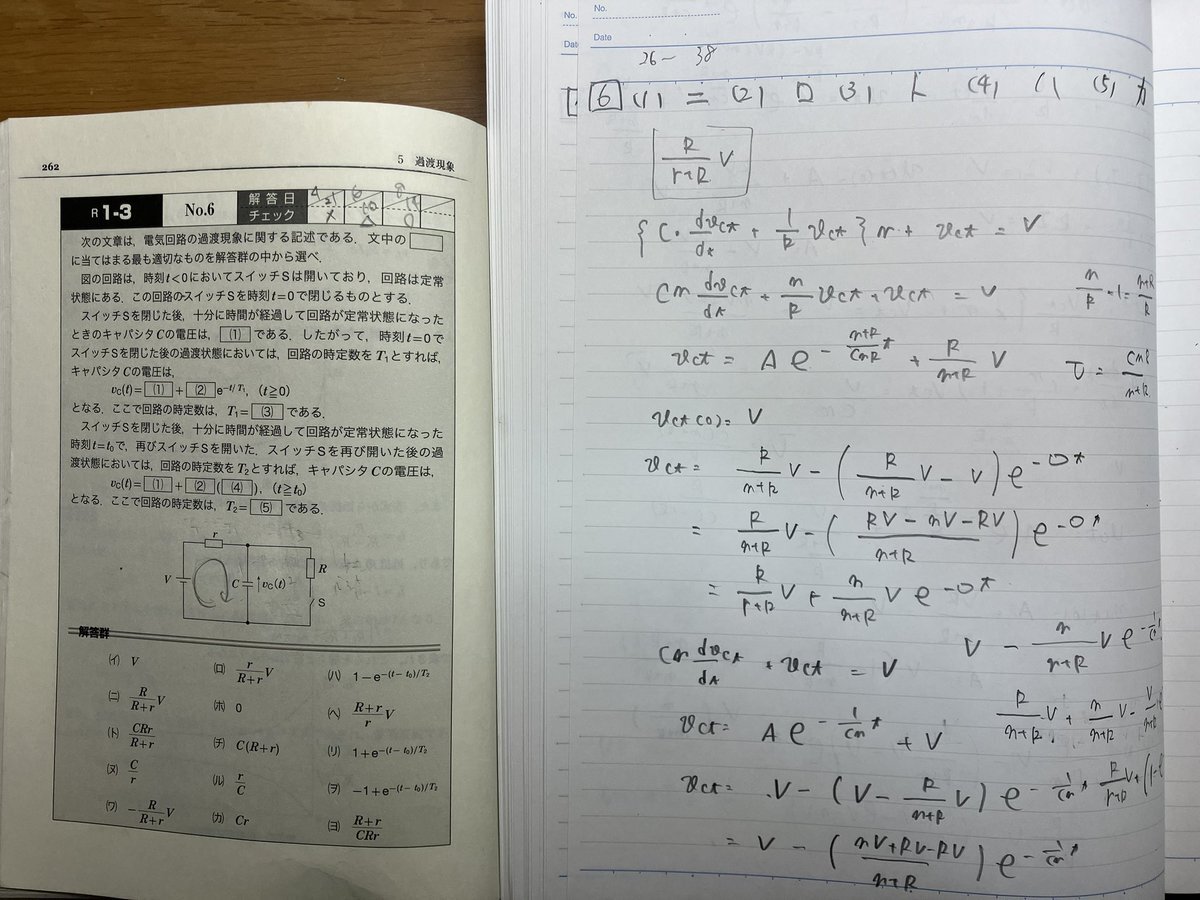 262
5 過渡現象
R1-3 No.6 解答日 チェック
次の文章は，電気回路の過渡現象に関する記述である．文中の
に当てはまる最も適切なものを解答群の中から選べ．
図の回路は，時刻t<0においてスイッチSは開いており，回路は定常
状態にある．この回路のスイッチSを時刻t=0で閉じるものとする．
スイッチSを閉じた後，十分に時間が経過して回路が定常状態になった
ときのキャパシタCの電圧は，(1)である．したがって，時刻t=0で
スイッチSを閉じた後の過渡状態においては，回路の時定数をT₁とすれば，
キャパシタCの電圧は，
v_C(t)=(1)+(2)e^{-t/T₁}，(t≧0)
となる．ここで回路の時定数は，T₁=(3)である．
スイッチSを閉じた後，十分に時間が経過して回路が定常状態になった
時刻t=t₀で，再びスイッチSを開いた．スイッチSを再び開いた後の過
渡状態においては，回路の時定数をT₂とすれば，キャパシタCの電圧は，
v_C(t)=(1)+(2)((4))，(t≧t₀)
となる．ここで回路の時定数は，T₂=(5)である．
r
V C v_C(t) R
S
解答群
(イ) V (ロ) r/(R+r) V (ハ) 1-e^{-(t-t₀)/T₂}
(ニ) R/(R+r) V (ホ) 0 (ヘ) (R+r)/r V
(ト) CRr/(R+r) (チ) C(R+r) (リ) 1+e^{-(t-t₀)/T₂}
(ヌ) C/r (ル) r/C (ヲ) -1+e^{-(t-t₀)/T₂}
(ワ) -R/(R+r) V (カ) Cr (ヨ) (R+r)/CRr
No.
Date
No.
Date
26-38
6 (1) ニ (2) ロ (3) ト (4) ハ (5) カ
R/(r+R) V
{C・dvct/dt + 1/R vct}r + vct = V
Cr dvct/dt + r/R vct + vct = V
r/R + 1 = (r+R)/R
vct = A e^{-(r+R)/(CrR) t} + R/(r+R) V
τ = CrR/(r+R)
vct(0) = V
vct = R/(r+R) V - (R/(r+R) V - V) e^{-○t}
= R/(r+R) V - ((RV-rV-RV)/(r+R)) e^{-○t}
= R/(r+R) V + r/(r+R) V e^{-○t}
Cr dvct/dt + vct = V
V - r/(r+R) V e^{-1/Cr t}
vct = A e^{-1/Cr t} + V
vct = V - (V - R/(r+R) V) e^{-1/Cr t}
= V - ((rV+RV-RV)/(r+R)) e^{-1/Cr t}